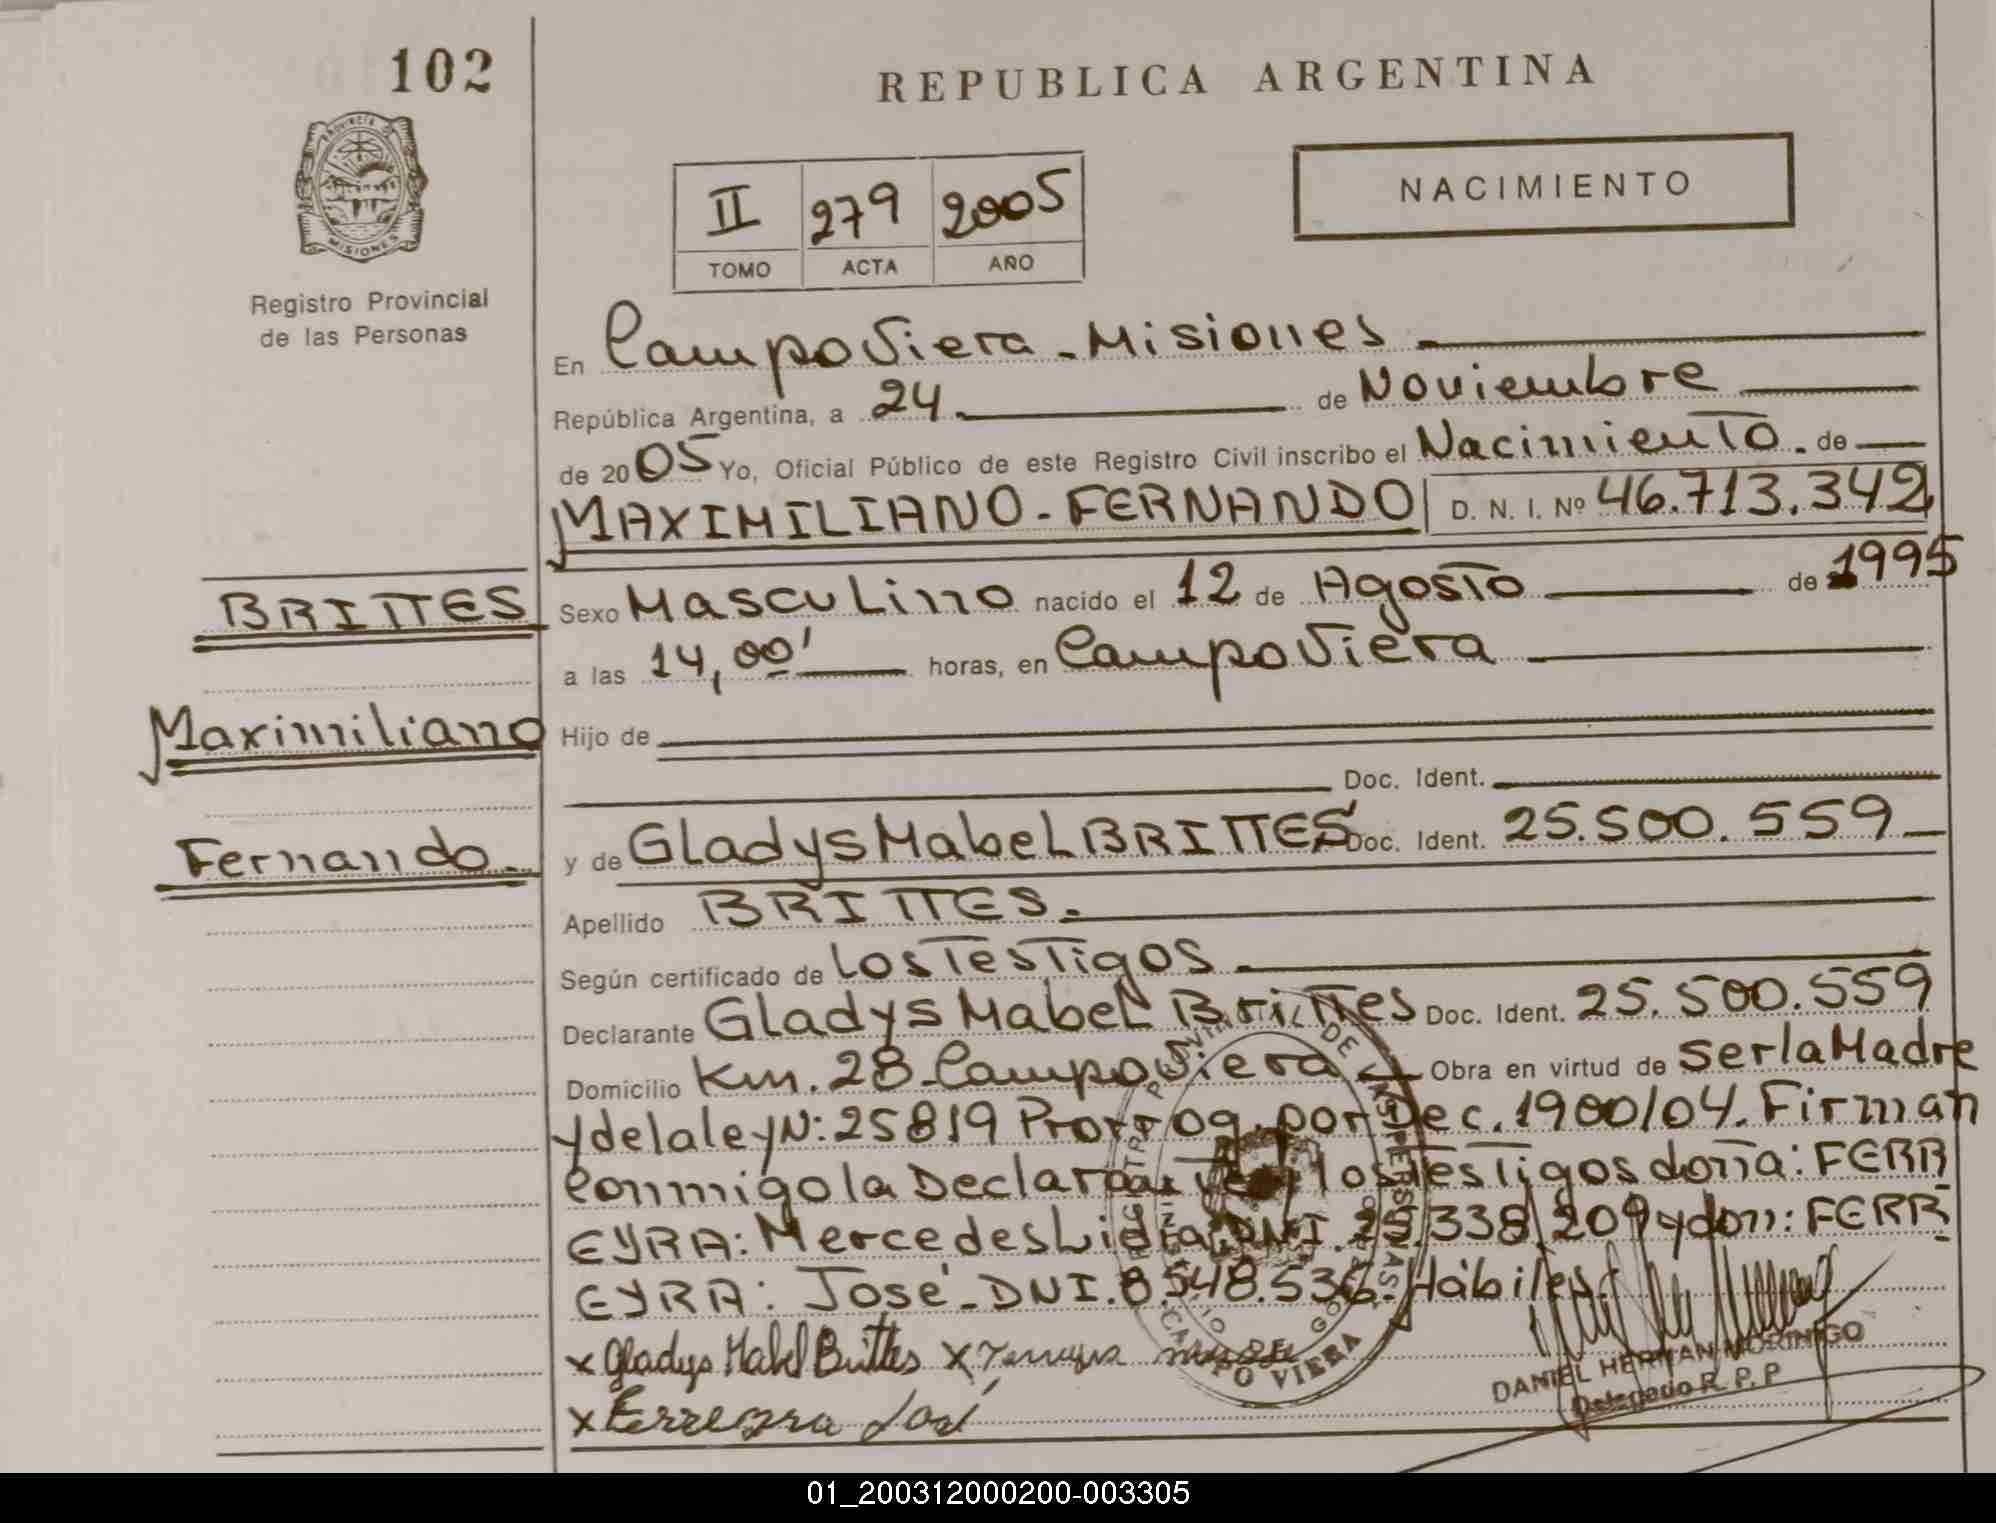 102
REPUBLICA ARGENTINA
PROVINCIA DE
MISIONES
Registro Provincial
de las Personas
II 279 2005
TOMO ACTA AÑO
NACIMIENTO
En Campo Viera - Misiones
República Argentina, a 24 de Noviembre
de 2005 Yo, Oficial Público de este Registro Civil inscribo el Nacimiento. de
MAXIMILIANO - FERNANDO D. N. I. Nº 46.713.342
BRITTES
Sexo Masculino nacido el 12 de Agosto de 1995
a las 14,00' horas, en Campo Viera
Maximiliano
Hijo de
Doc. Ident.
Fernando
y de Gladys Mabel BRITTES Doc. Ident. 25.500.559
Apellido BRITTES.
Según certificado de Los Testigos
Declarante Gladys Mabel Brittes Doc. Ident. 25.500.559
Domicilio Km. 28 - Campo Viera Obra en virtud de ser la Madre
y de la ley N: 25819 Prorrog. por Dec. 1900/04. Firman
Conmigo la Declarante y los Testigos doña: FERR
EYRA: Mercedes Lidia DNI. 338.209 y don: FERR
EYRA: José - DNI. 8.548.536. Hábiles.
x Gladys Mabel Brittes x
x Ferreyra José
CAMPO VIERA
DANIEL HERNAN MORINIGO
Delegado R. P. P
01_200312000200-003305